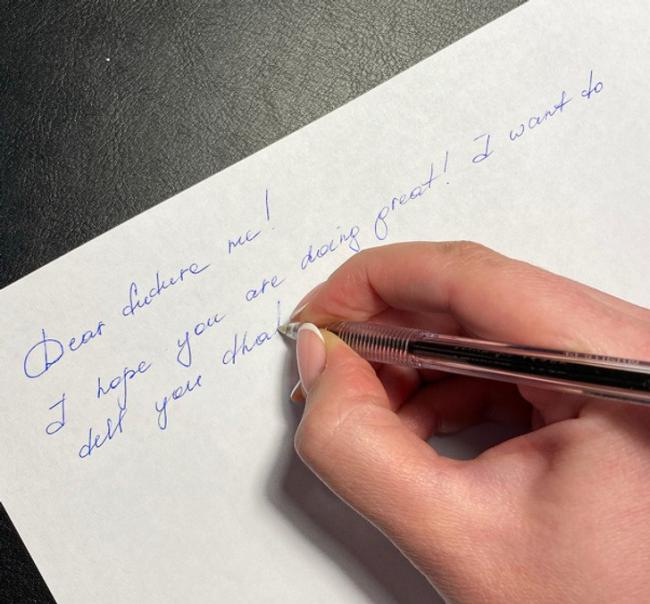 Dear future me!
I hope you are doing great! I want to
tell you that